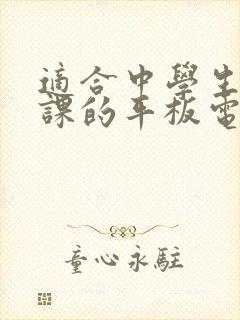 適合中學生
課的平板電
童心永駐